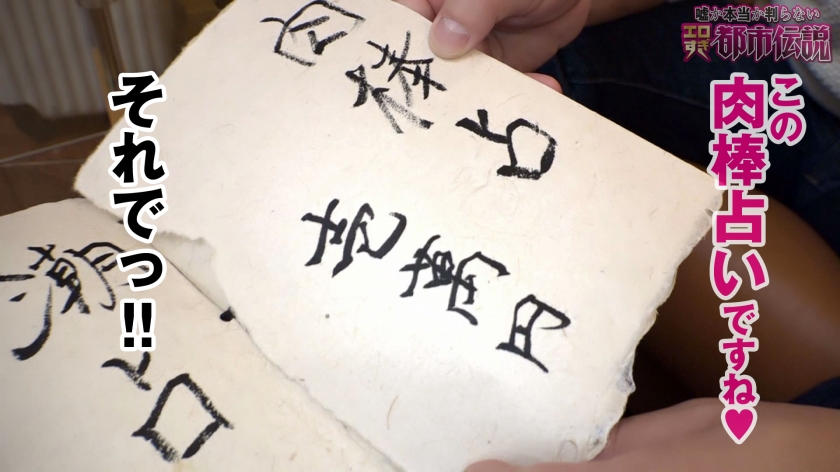 嘘か本当か判らない
エロすぎ
都市伝説
この
肉棒占いですね♥
それでっ!!
肉棒占
壱萬円
潮占